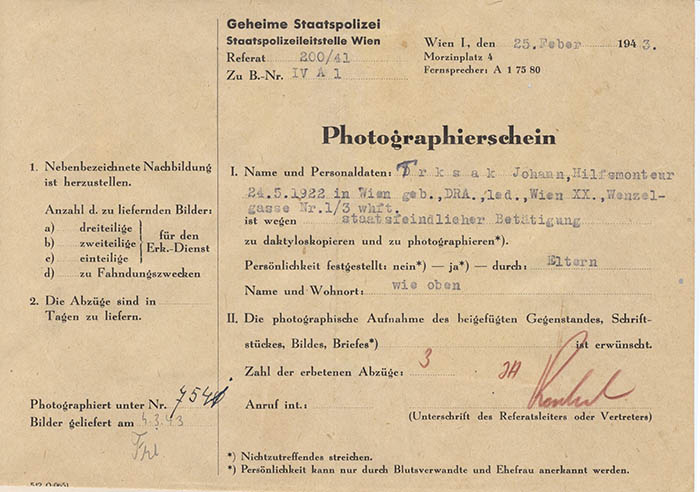 Geheime Staatspolizei
Staatspolizeileitstelle Wien
Referat 200/41
Zu B.-Nr. IV A 1
Wien I, den 25. Feber 1943.
Morzinplatz 4
Fernsprecher: A 1 75 80
Photographierschein
1. Nebenbezeichnete Nachbildung
ist herzustellen.
Anzahl d. zu liefernden Bilder:
a) dreiteilige
b) zweiteilige
c) einteilige
für den
Erk.-Dienst
d) zu Fahndungszwecken
2. Die Abzüge sind in
Tagen zu liefern.
Photographiert unter Nr.
Bilder geliefert am 4.3.43
I. Name und Personaldaten: Johann, Hilfsmonteur
24.5.1922 in Wien geb., DRA., led., Wien XX., Wenzel-
gasse Nr. 1/3 whft.
ist wegen staatsfeindlicher Betätigung
zu daktyloskopieren und zu photographieren*).
Persönlichkeit festgestellt: nein*) — ja*) — durch: Eltern
Name und Wohnort: wie oben
II. Die photographische Aufnahme des beigefügten Gegenstandes, Schrift-
stückes, Bildes, Briefes*) ist erwünscht.
Zahl der erbetenen Abzüge: 3
Anruf int.:
(Unterschrift des Referatsleiters oder Vertreters)
*) Nichtzutreffendes streichen.
*) Persönlichkeit kann nur durch Blutsverwandte und Ehefrau anerkannt werden.